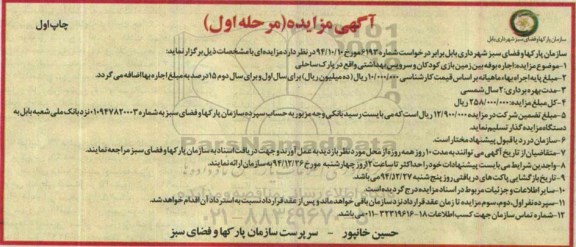 آگهی مزایده (مرحله اول)
چاپ اول
سازمان پارکها و فضای سبز شهرداری بابل
سازمان پارکها و فضای سبز شهرداری بابل برابر درخواست شماره ۶۱۹۳ مورخ ۹۴/۱۰/۱۰ در نظر دارد مزایده ای با مشخصات ذیل برگزار نماید:
۱-موضوع مزایده: اجاره بوفه بین زمین بازی کودکان و سرویس بهداشتی واقع در پارک ساحلی
۲-مبلغ پایه اجراه بهاء ماهیانه بر اساس قیمت کارشناسی ۱۰/۰۰۰/۰۰۰ ریال (ده میلیون ریال) برای سال اول و برای سال دوم ۱۵ درصد به مبلغ اجاره بها اضافه می گردد.
۳-مدت بهره برداری: ۲ سال شمسی
۴-کل مبلغ مزایده: ۲۵۸/۰۰۰/۰۰۰ ریال
۵-مبلغ تضمین شرکت در مزایده ۱۲/۹۰۰/۰۰۰ ریال است که می بایست رسید بانکی وجه مزبور به حساب سپرده سازمان پارکها و فضای سبز به شماره ۰۱۰۹۴۷۸۲۰۰۰۳ نزد بانک ملی شعبه بابل به
دستگاه مزایده گذار تسلیم نماید.
۶-سازمان در رد یا قبول پیشنهاد مختار است.
۷-متقاضیان از تاریخ آگهی می توانند به مدت ۱۰ روز همه روزه از محل مورد نظر بازدید به عمل آورند و جهت دریافت اسناد به سازمان پارکها و فضای سبز مراجعه نمایند.
۸-واجدین شرایط می بایست پیشنهادات خود را حداکثر تا ساعت ۱۲ روز چهارشنبه مورخ ۹۴/۱۲/۲۶ به سازمان ارائه نمایند.
۹-تاریخ بازگشایی پاکت های دریافتی روز پنج شنبه ۹۴/۱۲/۲۷ می باشد.
۱۰-سایر اطلاعات و جزئیات مربوط در اسناد مزایده درج گردیده است.
۱۱-سپرده نفر اول، دوم، سوم مزایده تا زمان عقد قرارداد نزد سازمان باقی خواهد ماند و پس از عقد قرارداد نسبت به استرداد آن اقدام خواهد شد.
۱۲-شماره تماس سازمان جهت کسب اطلاعات ۱۸-۳۲۳۱۹۶۱۶-۰۱۱ می باشد.
حسین خانپور - سرپرست سازمان پارکها و فضای سبز
ParsNamadData
۰۲۱-۸۸۳۴۹۶۷۰